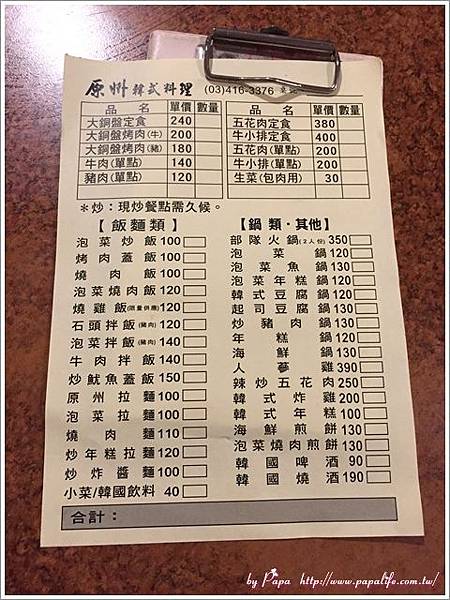 原州韓式料理 (03)416-3376
品名 單價 數量
大鍋盤定食 240
大銅盤烤肉(牛) 200
大銅盤烤肉(豬) 180
牛肉(單點) 140
豬肉(單點) 120
品名 單價 數量
五花肉定食 380
牛小排定食 400
五花肉(單點) 200
牛小排(單點) 200
生菜(包肉用) 30
*炒：現炒餐點需久候。
【飯麵類】
泡菜炒飯 100
烤肉蓋飯 100
燒肉飯 100
泡菜燒肉飯 120
燒雞飯(限量供應) 120
石頭拌飯(豬肉) 120
泡菜拌飯(豬肉) 140
牛肉拌飯 140
炒魷魚蓋飯 150
原州拉麵 100
泡菜拉麵 100
燒肉麵 110
炒年糕拉麵 120
炒炸醬麵 100
小菜/韓國飲料 40
【鍋類・其他】
部隊火鍋(2人份) 350
泡菜鍋 120
泡菜魚鍋 130
泡菜年糕鍋 120
韓式豆腐鍋 120
起司豆腐鍋 130
炒豬肉鍋 130
年糕鍋 120
海鮮鍋 130
人蔘雞 390
辣炒五花肉 250
韓式炸雞 200
韓式年糕 100
海鮮煎餅 130
泡菜燒肉煎餅 130
韓國啤酒 90
韓國燒酒 190
合計：
by Papa http://www.papalife.com.tw/